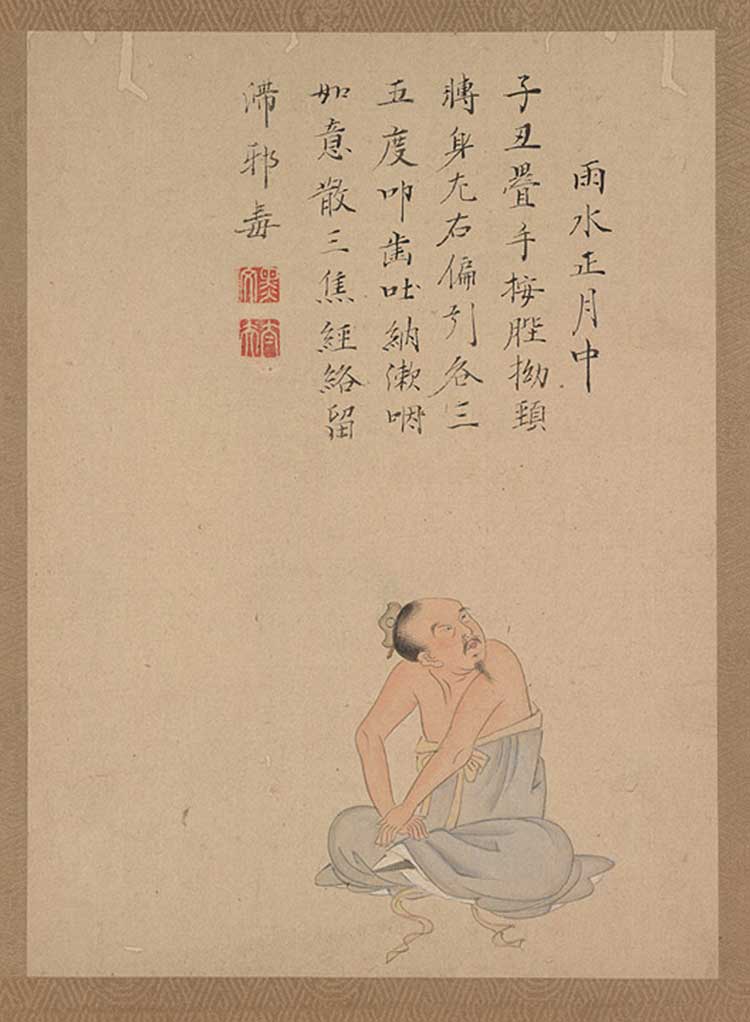 雨水正月中
子丑畳手按䏶拗頸
轉身左右偏引各三
五度叩歯吐納漱咽
如意散三焦經絡留
滯邪毒